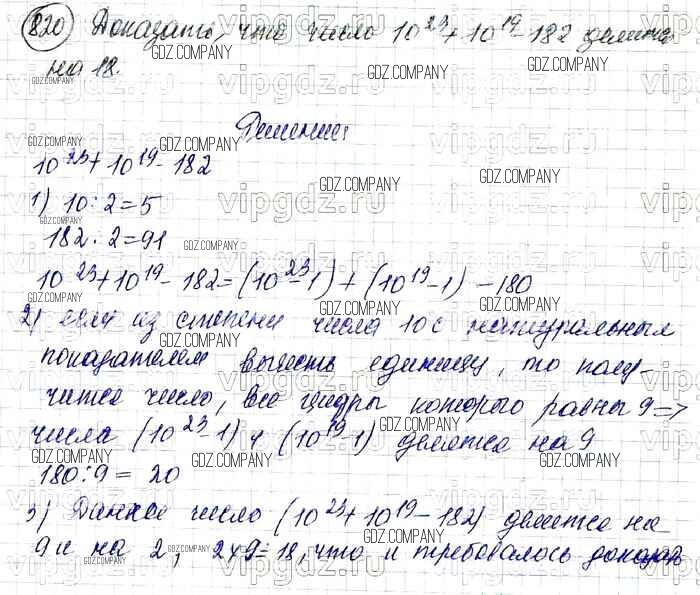 820 Доказать, что число 10²³ + 10¹⁹ - 182 делится
на 18.
Решение:
10²³ + 10¹⁹ - 182
1) 10 : 2 = 5
182 : 2 = 91
10²³ + 10¹⁹ - 182 = (10²³ - 1) + (10¹⁹ - 1) - 180
2) если из степени числа 10 с натуральным
показателем вычесть единицу, то полу-
чится число, все цифры которого равны 9 =>
числа (10²³ - 1) и (10¹⁹ - 1) делятся на 9
180 : 9 = 20
3) Данное число (10²³ + 10¹⁹ - 182) делится на
9 и на 2, 2 × 9 = 18, что и требовалось доказать
GDZ.COMPANY
vipgdz.ru